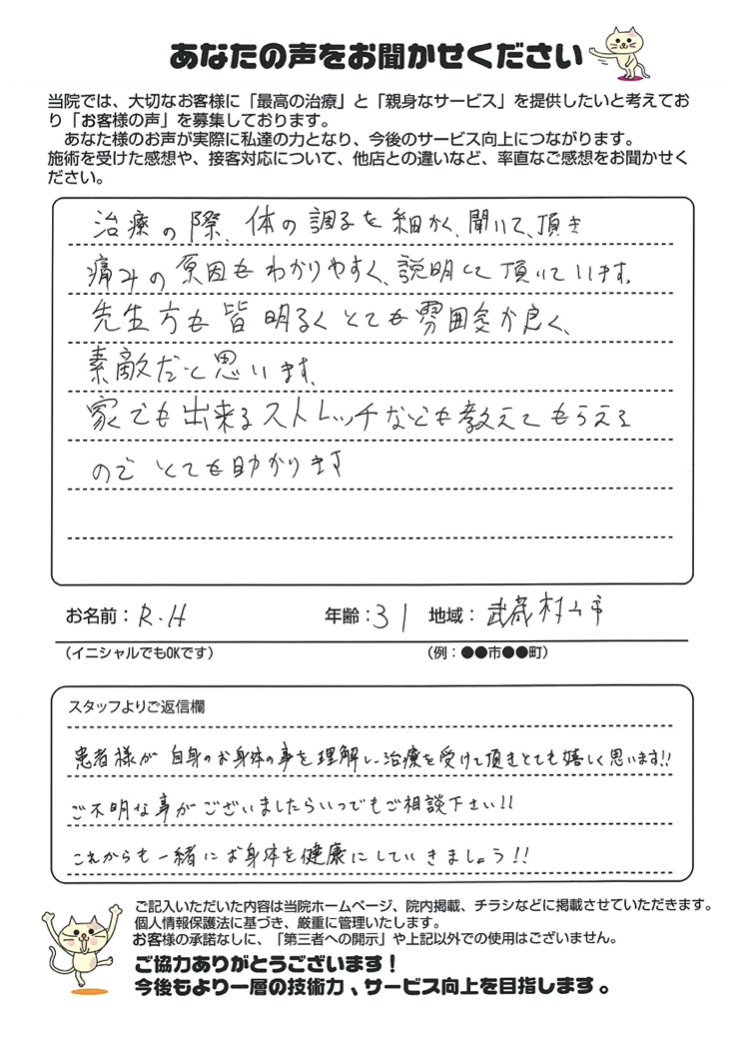 あなたの声をお聞かせください
当院では、大切なお客様に「最高の治療」と「親身なサービス」を提供したいと考えてお
り「お客様の声」を募集しております。
あなた様のお声が実際に私達の力となり、今後のサービス向上につながります。
施術を受けた感想や、接客対応について、他店との違いなど、率直なご感想をお聞かせく
ださい。
治療の際、体の調子を細かく、聞いて、頂き
痛みの原因もわかりやすく、説明して頂いています。
先生方も皆明るくとても雰囲気が良く、
素敵だと思います。
家でも出来るストレッチなども教えてもらえる
のでとても助かります
お名前：R.H 年齢：31 地域：武蔵村山市
（イニシャルでもOKです） （例：●●市●●町）
スタッフよりご返信欄
患者様が自身のお身体の事を理解し治療を受けて頂きとても嬉しく思います!!
ご不明な事がございましたらいつでもご相談下さい!!
これからも一緒にお身体を健康にしていきましょう!!
ご記入いただいた内容は当院ホームページ、院内掲載、チラシなどに掲載させていただきます。
個人情報保護法に基づき、厳重に管理いたします。
お客様の承諾なしに、「第三者への開示」や上記以外での使用はございません。
ご協力ありがとうございます！
今後もより一層の技術力、サービス向上を目指します。